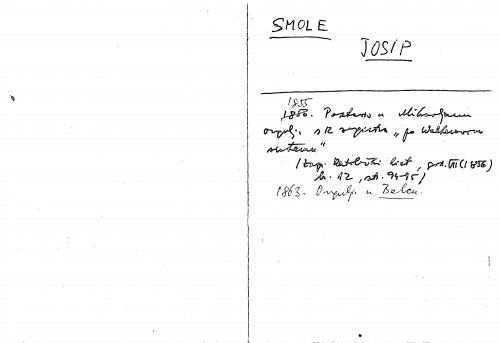 SMOLE
JOSIP
1855
1856. Postavio u Mihovljanu
orgulje s 12 registra „po Walkerovom
sistemu"
(Zagr. Katolički list, god. VII (1856)
br. 12, str. 94-95)
1863. Orgulje u Belcu.